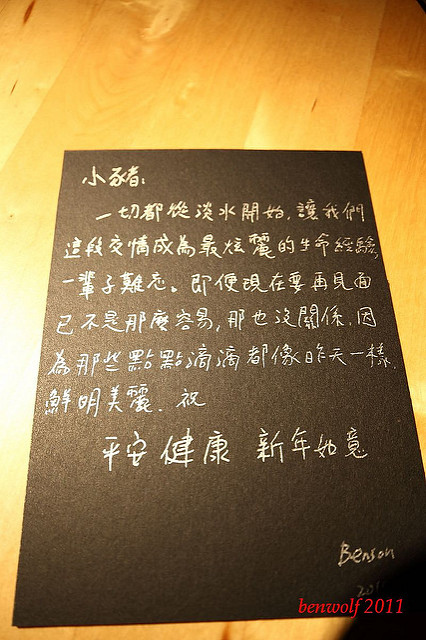 小豬:
一切都從淡水開始, 讓我們
這段交情成為最炫麗的生命經驗,
一輩子難忘。即便現在要再見面
已不是那麼容易, 那也沒關係, 因
為那些點點滴滴都像昨天一樣,
鮮明美麗. 祝
平安健康 新年如意
Benson
benwolf 2011